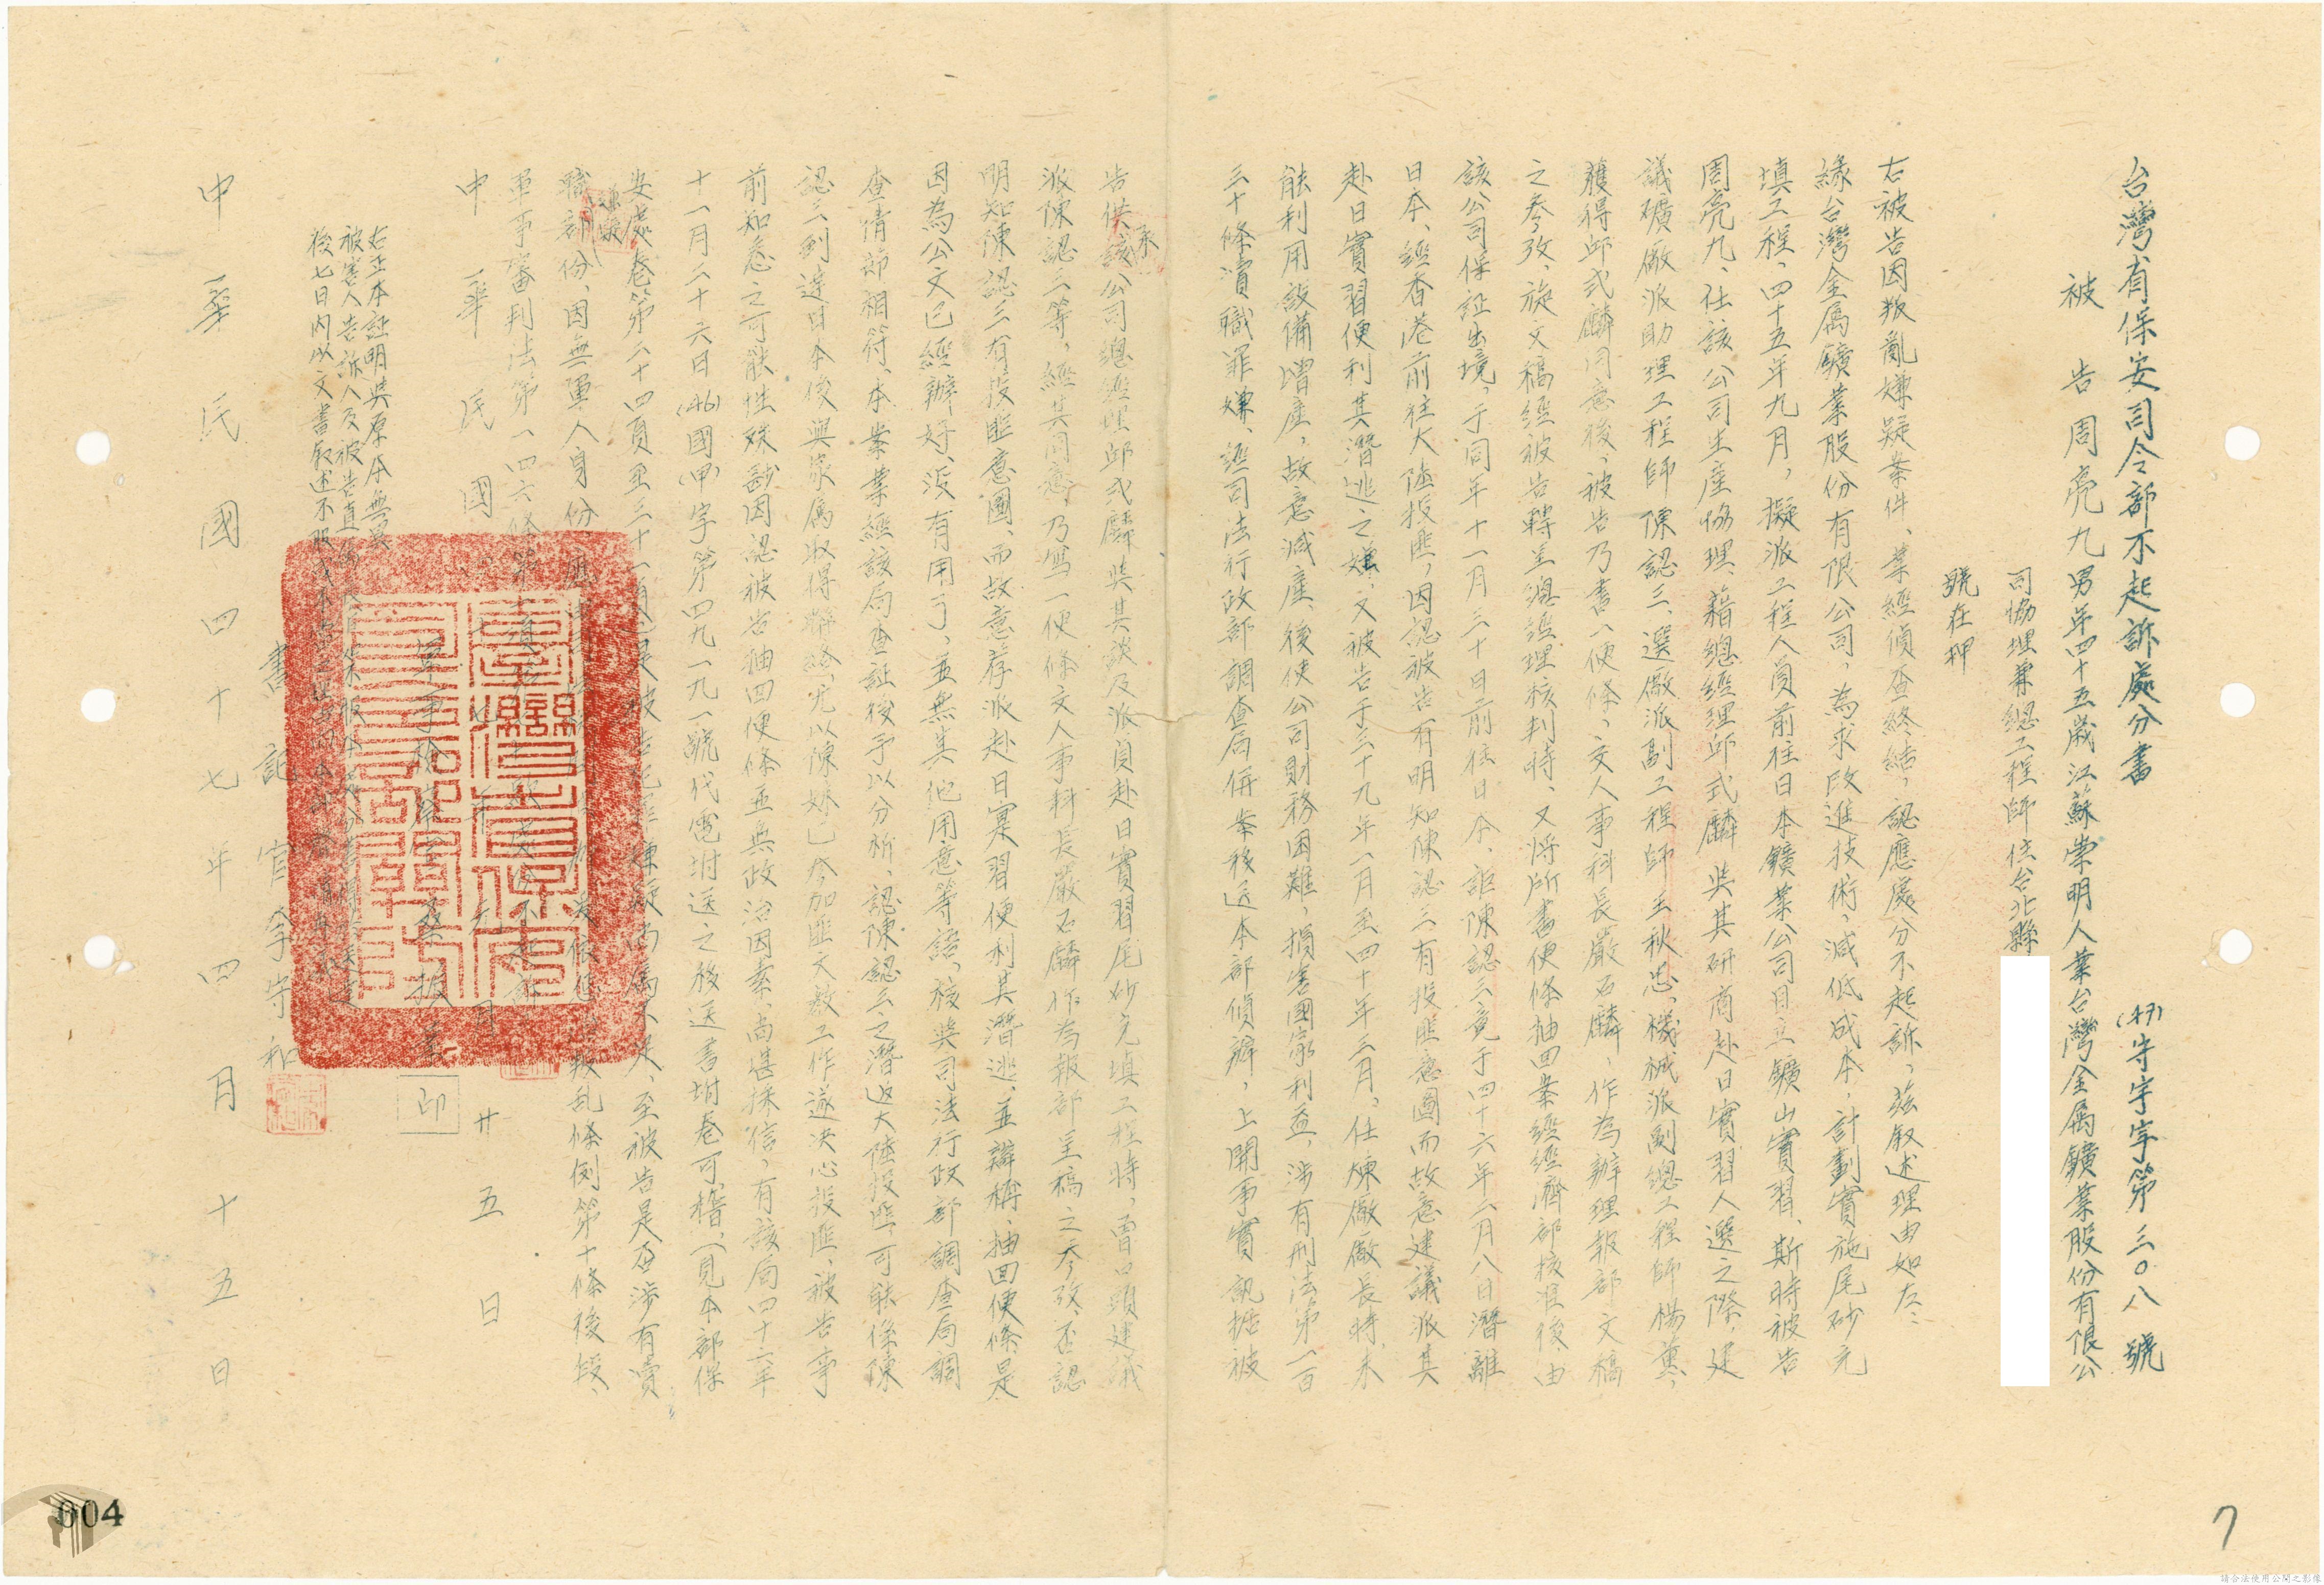 台灣省保安司令部不起訴處分書
(47)守字第三〇八號
被告周亮九男年四十五歲江蘇崇明人業台灣金属鑛業股份有限公
司協理兼總工程師住台北縣
號在押
右被告因叛亂嫌疑案件、業經偵查終結，認應處分不起訴，茲叙述理由如左：
緣台灣金属鑛業股份有限公司，為求改進技術，減低成本，計劃實施尾砂充
填工程，四十五年九月，擬派工程人員前往日本鑛業公司日立鑛山實習、斯時被告
周亮九、任該公司生產協理、藉總經理邱式麟與其研商赴日實習人選之際、建
議礦廠派助理工程師陳認三、選廠派副工程師王秋忠、機械派副總工程師楊薰，
獲得邱式麟同意後，被告乃書一便條、交人事科長嚴石麟，作為辦理報部文稿
之參攷，旋文稿經被告轉呈總經理核判時、又將所書便條抽回案經經濟部核准後由
該公司保証出境，于同年十一月三十日前往日本、詎陳認三竟于四十六年二月八日潛離
日本、經香港前往大陸投匪，因認被告有明知陳認三有投匪意圖而故意建議派其
赴日實習便利其潛逃之嫌，又被告于三十九年一月至四十年三月，任煉廠廠長時，未
能利用設備增產，故意減產、後使公司財務困難，損害國家利益，涉有刑法第一百
三十條瀆職罪嫌、經司法行政部調查局併案移送本部偵辦，上開事實訊據被
告供承該公司總經理邱式麟與其談及派員赴日實習尾砂充填工程時，曾口頭建議
派陳認三等，經其同意，乃寫一便條交人事科長嚴石麟作為報部呈稿之參攷、否認
明知陳認三有投匪意圖，而故意荐派赴日實習便利其潛逃，並辯稱、抽回便條是
因為公文已經辦好、沒有用了，並無其他用意等語，核與司法行政部調查局調
查情節相符、本案業經該局查証後予以分析，認陳認三之潛返大陸投匪，可能係陳
認三到達日本後與家属取得聯絡，尤以陳妹已參加匪文教工作遂決心投匪，被告事
前知悉之可能性殊尠因認被告抽回便條並無政治因素，尚堪採信，有該局四十六年
十一月二十六日(46)國(甲)字第四九一九一號代電坿送之移送書坿卷可稽，見本部保
安處卷第二十四頁至三十一頁是被告犯罪嫌疑尚属不足，至被告是否涉有瀆
職嫌疑部份，因無軍人身份應由司法機關偵辦爰依懲治叛乱條例第十條後段、
軍事審判法第一四六條第
中華民國四十七年三月廿五日
軍事檢察官
印
右正本証明與原本無異
被害人告訴人及被告直屬
後七日內以文書叙述不服
中華民國四十七年四月十五日
書記官李守和
004
7
請合法使用公開之影像